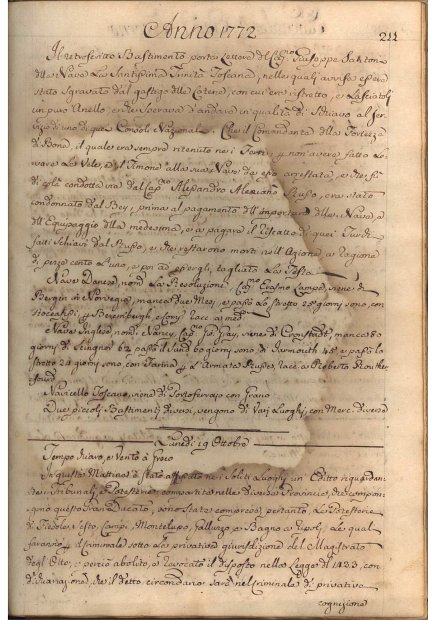 Anno 1772
211
Il retroscritto Bastimento porta Lettere del Cap.no Giuseppe Santon
della Nave La Santissima Trinità Toscana, nelle quali avvisa essere
stato sgravato dal gastigo delle Catene, con cui era ristretto, e lasciatoli
un puro Anello, e che sperava d'andare in qualità di Schiavo al ser-
vizio di uno di quei Consoli Nazionali. Che il Comandante della Fortezza
di Bona, il quale era sempre ritenuto nei Ferri p non avere fatto Le-
vare Le Vele, e il Timone alla sua Nave da esso arrestata, e che fu
di colà condotta via dal Cap.no Alessandro Alexiano Russo, era stato
condannato dal Bey, prima al pagamento dell'importare della Nave, e
dell'Equipaggio della medesima, e a pagare il Riscatto di quei Turchi
fatti schiavi dal Russo, e che restarono morti nell'Azione a ragione
di pezze cento l'uno, e poi ad essergli tagliata La Testa.
Nave Danese, nom.ta La Resoluzione, Cap.no Erasmo Campo, viene di
Berghen in Norvegia, manca due Mesi, e passò Lo stretto 28 giorni sono, con
Stoccafissi
Nave Inglese, nom.ta Nancy, Cap.no Gray, viene di Cronstadt, manca 80
giorni di 62 passò il Sund 60 giorni sono, di Yarmouth 45, e passò Lo
stretto 24 giorni sono, con Farina p L'Armata Russa, racc. a Roberto Routher-
Navicello Toscano, viene di Portoferraio con Grano
Due piccoli Bastimenti diversi, vengono di Varj Luoghi, con Merc. diverse
Lunedì 19 Ottobre
Tempo chiaro, e Vento à Greco
In questa Mattina è stato affissato nei soliti Luoghi un Editto riguardan-
te i Tribunali, e Potesterie, compartite nelle diverse Provincie, che compon-
gono questo Gran Ducato, sono state comprese pertanto, Le Potesterie
di Fiesole, Sesto, Campi, Montelupo, Galluzzo, e Bagno a Ripoli, Le quali
saranno p il Criminale sotto La privativa giurisdizione del Magistrato
degli Otto, e perciò abolito, e revocato il disposto nella Legge di 1423, con
dichiarazione, che il detto circondario sarà nel Criminale di privativa
cognizione